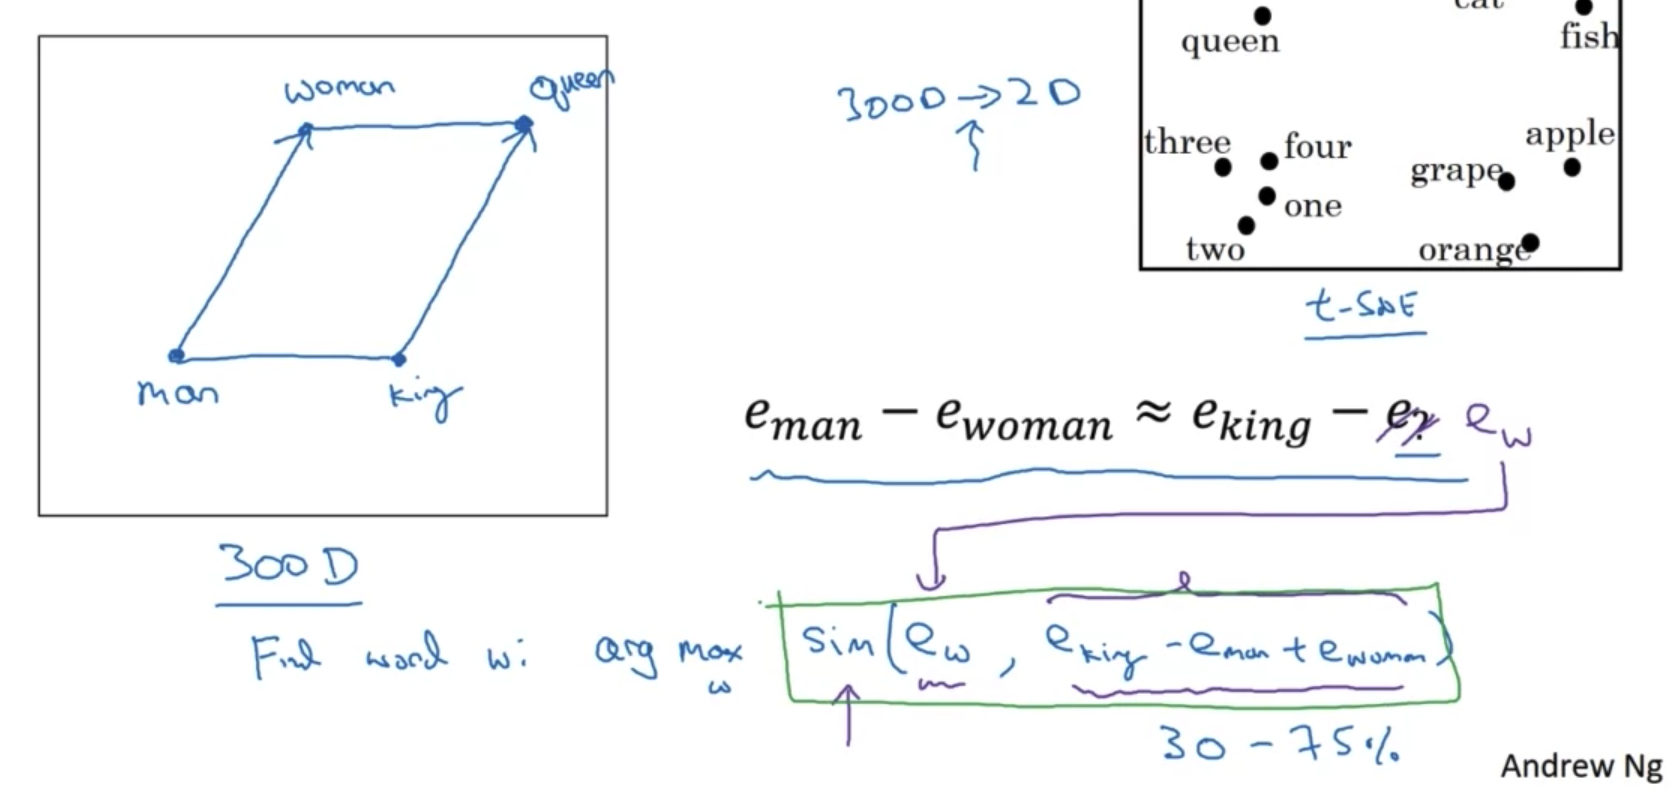 woman
queen
man
king
300 D
300D → 2D
cat
fish
queen
three
four
apple
grape
one
two
orange
t-SNE
e_man − e_woman ≈ e_king − e_? e_w
Find word w: arg max_w sim(e_w, e_king - e_man + e_woman)
30 - 75%
Andrew Ng